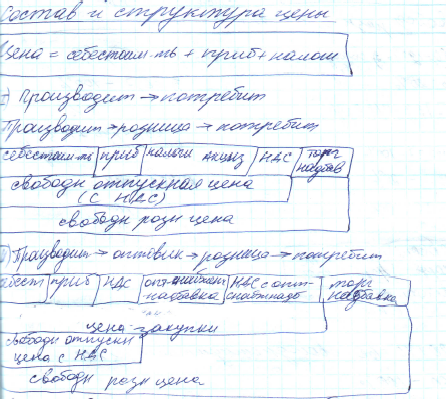 Состав и структура цены
Цена = себестоим-ть + приб + налоги
Производит → потребит
Производит → розница → потребит
себестоим-ть приб налоги акциз НДС торг надбав
свободн отпускная цена
(с НДС)
свободн розн цена
Производит → оптовик → розница → потребит
себест приб НДС опт-снабжен надбавка НДС с опт-снабж надб торг надбавка
цена закупки
свободн отпускн
цена с НДС
свободн розн цена